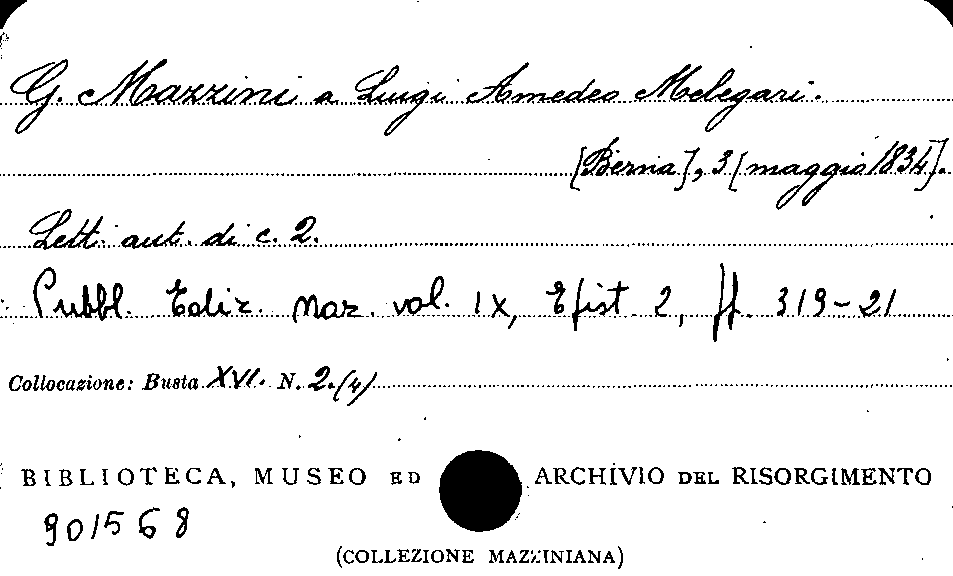 G. Mazzini a Luigi Amedeo Melegari.
[Berna], 3 [maggio 1834].
Lett. aut. di c. 2.
Pubbl. Ediz. Naz. vol. IX, Epist. 2, pp. 319-21
Collocazione: Busta XVI. N. 2.(4)
BIBLIOTECA, MUSEO ED ARCHIVIO DEL RISORGIMENTO
901568
(COLLEZIONE MAZZINIANA)